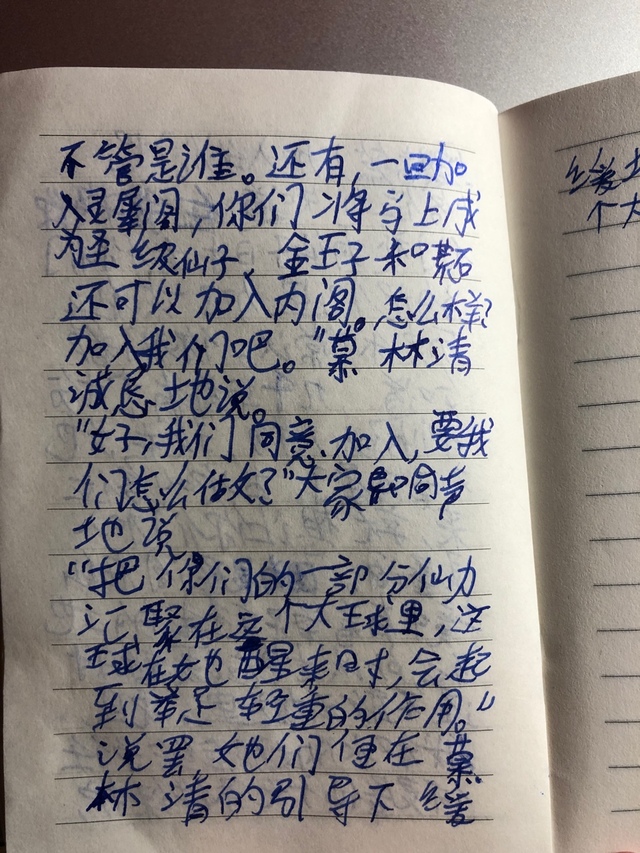 不管是谁。还有,一旦加
入灵犀阁,你们将马上成
为圣级仙子,金王子和
还可以加入内阁。怎么样?
加入我们吧。"慕林清
诚恳地说。
"好,我们同意加入,要我
们怎么做?"大家异口同声
地说
"把你们的一部分仙力
汇聚在这个大球里,这
球在她醒来时,会起
到举足轻重的作用。"
说罢她们便在慕
林清的引导下缓
缓
个大